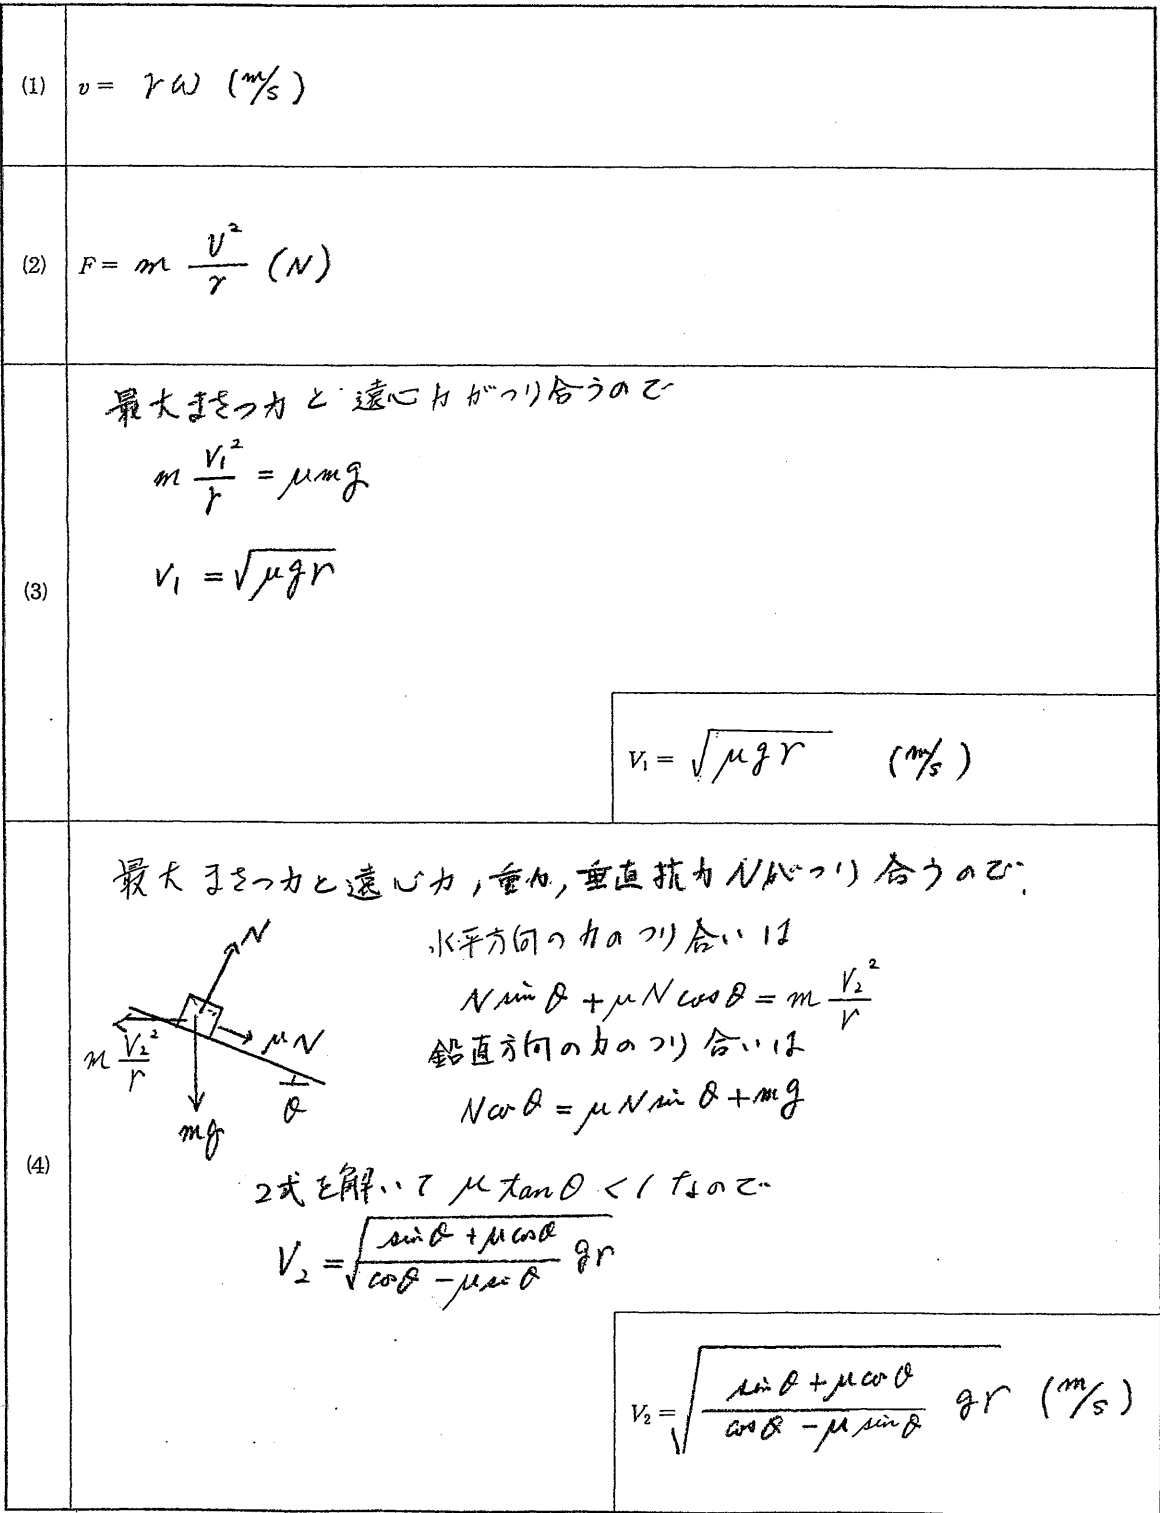 (1) v = rω (m/s)
(2) F = m v²/r (N)
最大まさつ力と遠心力がつり合うので
m V₁²/r = μmg
V₁ = √(μgr)
(3)
V₁ = √(μgr) (m/s)
最大まさつ力と遠心力,重力,垂直抗力Nがつり合うので,
水平方向の力のつり合いは
N sin θ + μN cos θ = m V₂²/r
鉛直方向の力のつり合いは
N cos θ = μN sin θ + mg
N
μN
m V₂²/r
θ
mg
(4)
2式を解いて μ tan θ < 1 なので
V₂ = √((sin θ + μ cos θ)/(cos θ - μ sin θ) gr)
V₂ = √((sin θ + μ cos θ)/(cos θ - μ sin θ) gr) (m/s)